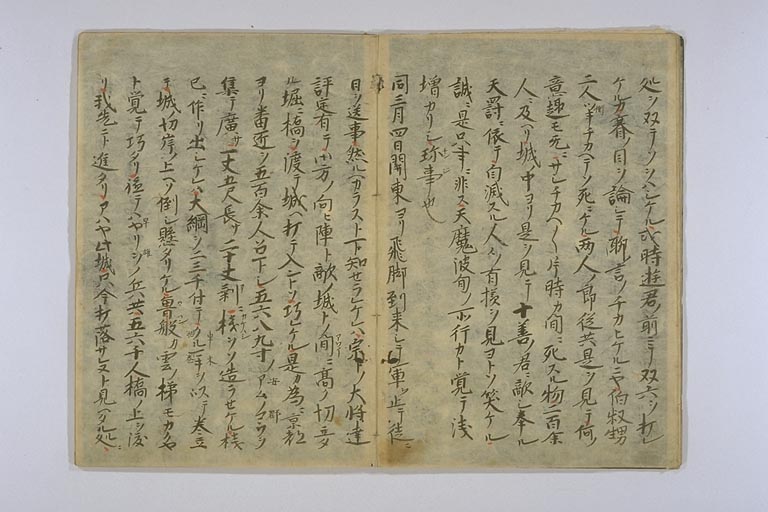 処ヲ双テソシハシケル或時遊君ノ前ニテ双六ヲ打レ
ケルカ賽ノ目ヲ論シテ聊言ノチカヒケルニヤ伯叔甥
二人チカヘテソ死ニケル両人ノ郎従共是ヲ見テ何ノ
意趣モ无ニサシチカヘ〱片時カ間ニ死スル物二百余
人ニ及ヘリ城中ヨリ是ヲ見テ十善ノ君ニ敵シ奉ル
天罰ニ依テ自滅スル人々ノ有様ヲ見ヨトソ笑ケル
誠ニ是只事ニ非ス天魔波旬ノ所行カト覚テ浅
増カリシ珍事也
同三月四日関東ヨリ飛脚到来シテ軍ヲ止テ徒ニ
日ヲ送事然ルヘカラスト下知セラレケレハ宗トノ大将達
評定有テ御方ノ向ヒ陣ト敵ノ城トノ間ニ高ク切立タ
ル堀ニ橋ヲ渡テ城ヘ打テ入ントソ巧ミケル是カ為ニ京都
ヨリ番匠ヲ五百余人召下シ五六八九寸ノ
集テ廣サ一丈五尺長サ二十丈剰ニ桟ヲソ造ラセケル桟
已ニ作リ出シケレハ大綱ヲ二三千付テヲ以テ巻立
テ城ノ切岸ノ上ヘソ倒シ懸タリケル魯般カ雲ノ梯モカクヤ
ト覚テ巧ナリ軈テハヤリヲノ兵共五六千人橋ノ上ヲ渡
リ我先ニト進タリアハヤ此城只今打落サヌト見ヘタル処ニ